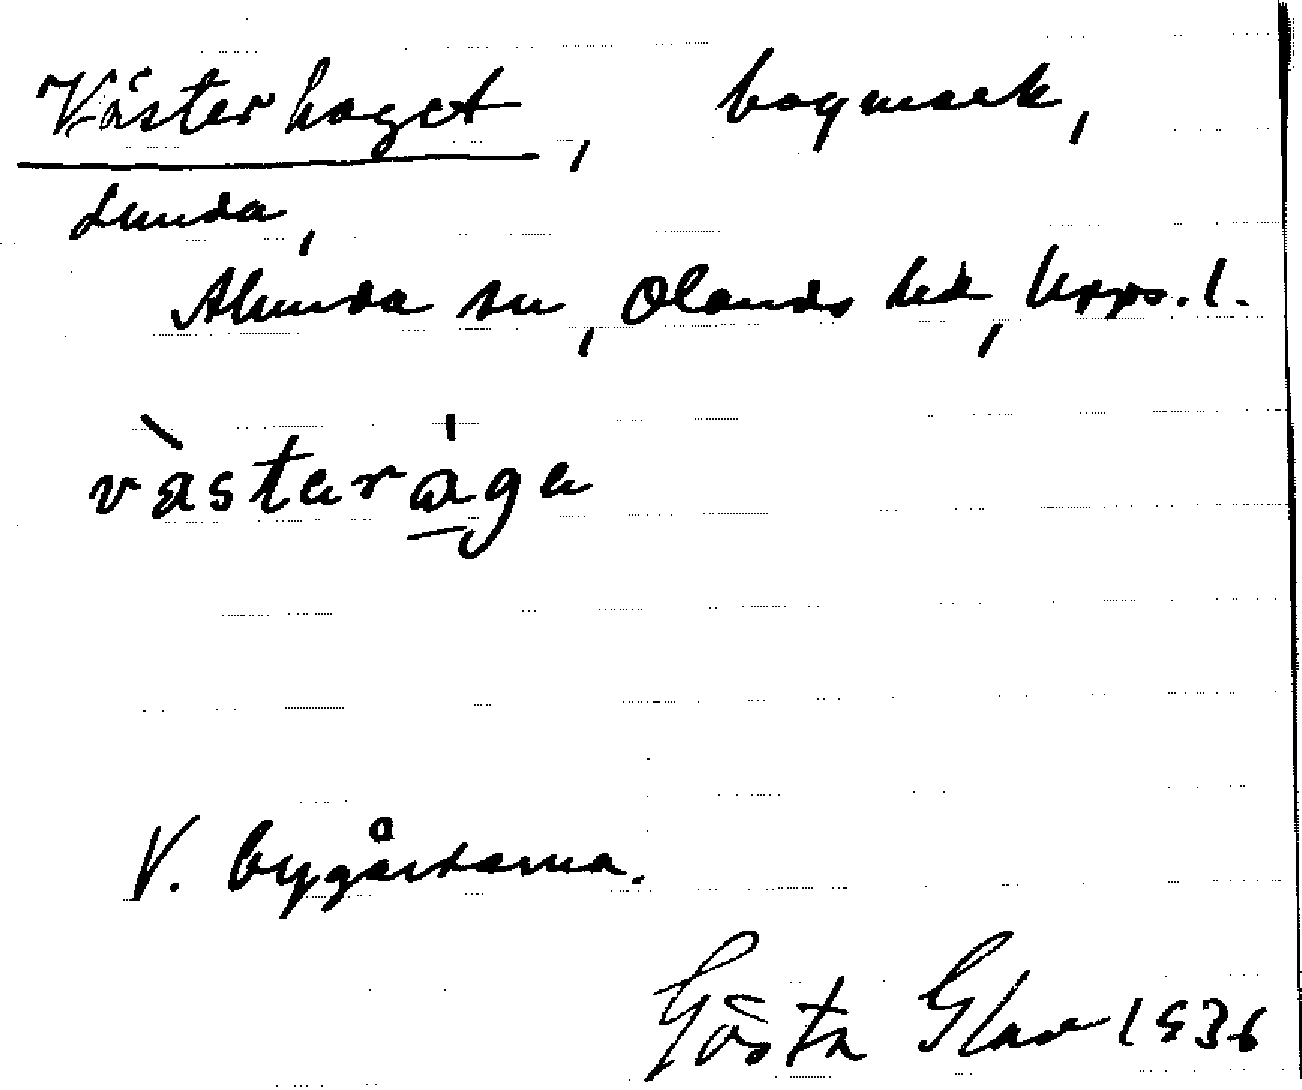 Västerhaget, bagmark,
Lunda,
Alunda sn, Olands hd, Upps. l.
västaraga
V. bygårdarna.
Gösta 1936